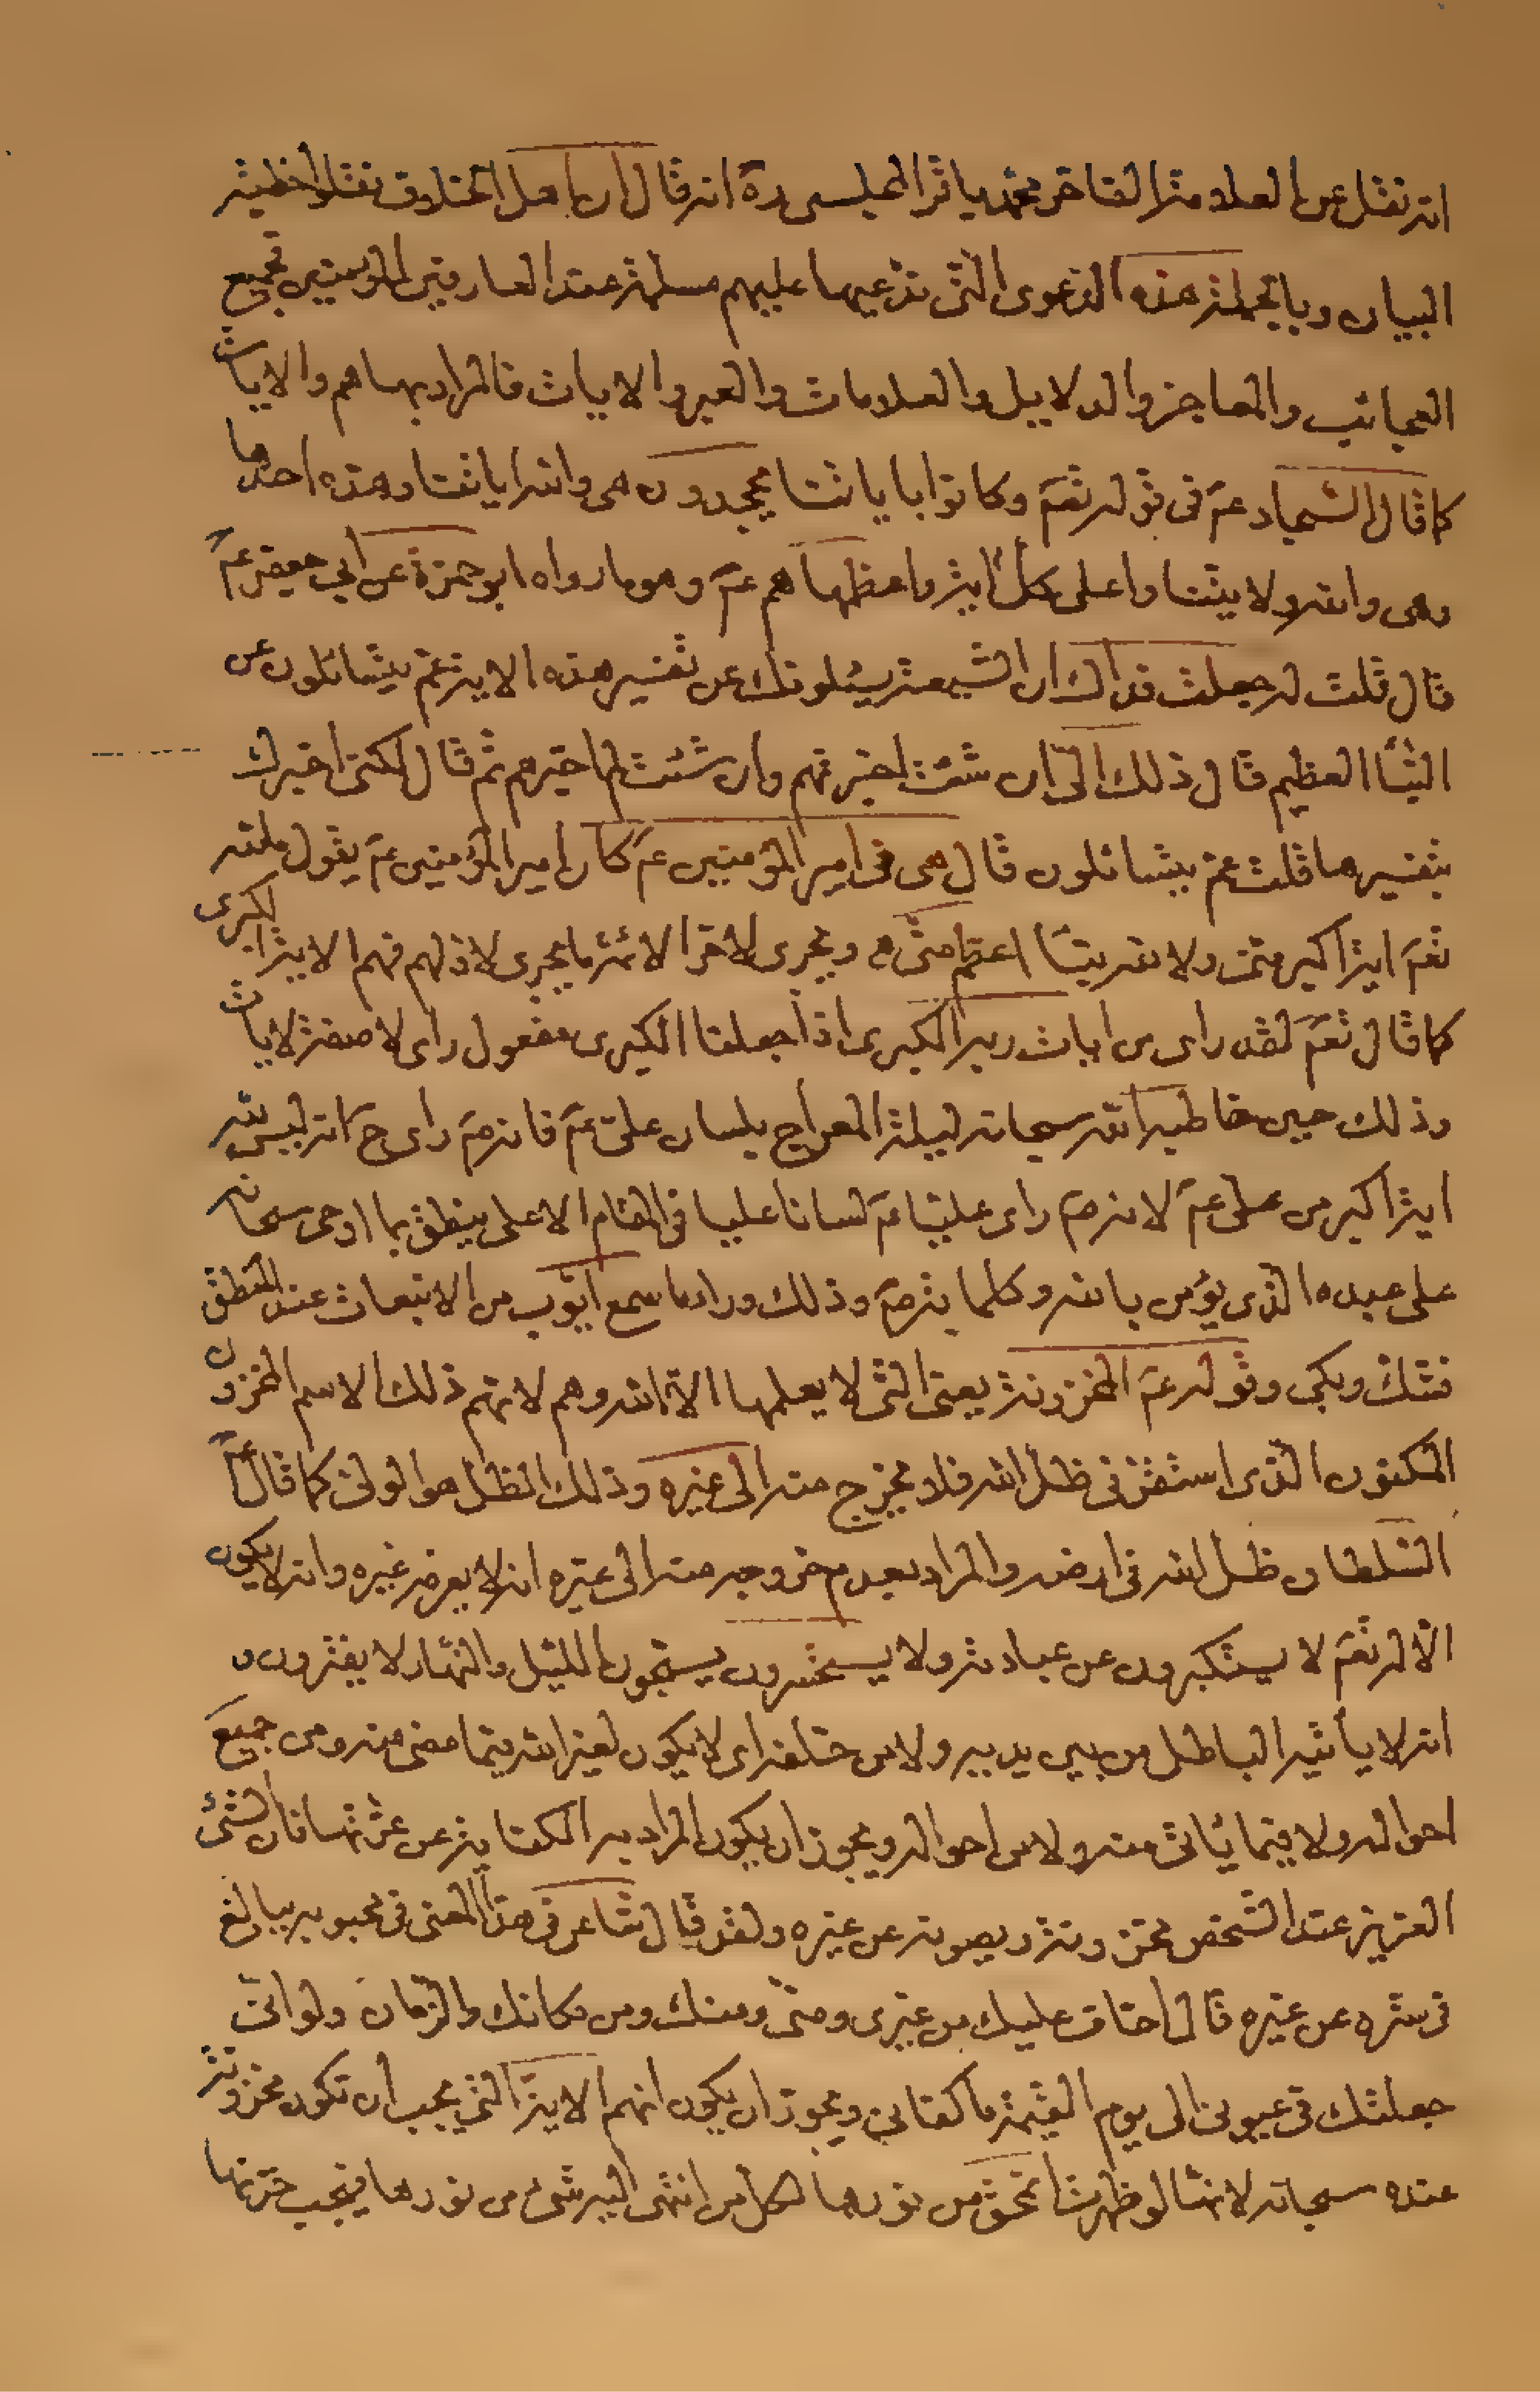 انه نقل عن العلامة الفاخر محمد باقر المجلسى ره انه قال ان اهل الخلاف نقلوا خطبة
البيان وبالجملة هذه الدعوى التى ندعيها عليهم مسلمة عند العارفين المؤمنين فجميع
العجائب والمعاجز والدلايل والعلامات والعبر والايات فالمراد بها هم والايات
كما قال السجاد عم فى قوله تعم وكانوا باياتنا يجحدون هى والله اياتنا وهذه احدها
وهى والله ولايتنا واعلى كل اية واعظمها هم عم وهو ما رواه ابو حمزة عن ابى جعفر عم
قال قلت له جعلت فداك ان الشيعة يسئلونك عن تفسير هذه الاية عم يتسائلون عن
النبأ العظيم قال ذلك الىّ ان شئت اخبرتهم وان شئت لم اخبرهم ثم قال لكنى اخبرك
بتفسيرها قلت عم يتسائلون قال هى فى امير المؤمنين عم كان امير المؤمنين عم يقول ما لله
تعم اية اكبر منى ولا لله نبأ اعظم منى ه ويجرى لاخر الائمة ما يجرى لاولهم فهم الاية الكبرى
كما قال تعم لقد راى من ايات ربه الكبرى اذا جعلنا الكبرى مفعول راى لا صفة لايات
وذلك حين خاطبه الله سبحانه ليلة المعراج بلسان علىّ عم فانه ص راى ح انه ليس لله
اية اكبر من على عم لانه ص راى عليّا عم لسانا عليا فى المقام الاعلى ينطق بما اوحى سبحانه
على عبده الذى يؤمن بالله وكلماته ص وذلك وراء ما سمع ايّوب من الانبعاث عند المنطق
فشك وبكى وقوله عم المخزونة يعنى التى لا يعلمها الا الله وهم لانهم ذلك الاسم المخزون
المكنون الذى استقر فى ظل الله فلا يخرج منه الى غيره وذلك الظل هو الولى كما قال عم
السلطان ظل الله فى ارضه والمراد بعدم خروجه منه الى غيره انه لا يعرفه غيره وانه لا يكون
الا له تعم لا يستكبرون عن عبادته ولا يستحسرون يسبحون الليل والنهار لا يفترون و
انه لا يأتيه الباطل من بين يديه ولا من خلفه اى لا يكون لغير الله فيما مضى منه ومن جميع
احواله ولا فيما يأتى منه ولا من احواله ويجوز ان يكون المراد به الكناية عن عزّتها فان الشئ
العزيز عند الشخص مخزون ويصونه عن غيره ولقد قال شاعر فى هذا المعنى فى محبوبه يبالغ
فى ستره عن غيره قال اخاف عليك من غيرى ومنّى ومنك ومن مكانك والزمان ولو انّى
جعلتك فى عيونى الى يوم القيمة ما كفانى ويجوز ان يكون انهم الاية التى يجب ان تكون مخزونة
عنده سبحانه لانها لو ظهرت لمحق من نورها كل من انتهى اليه شئ من نورها فيجب خزنها